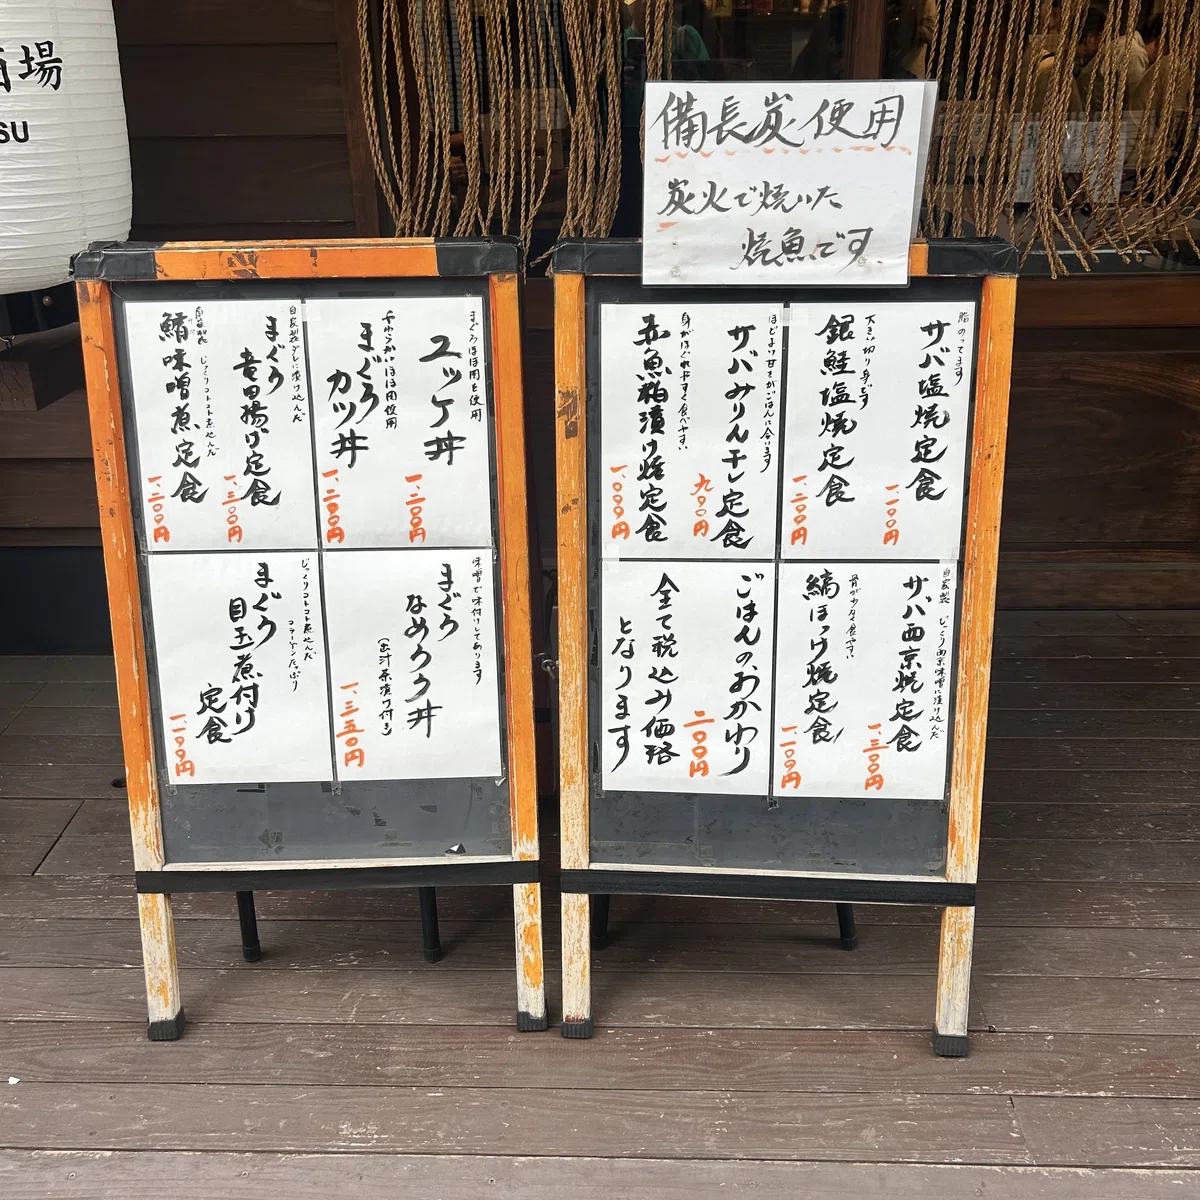 酒場
SU
備長炭使用
炭火で焼いた
焼魚です。
まぐろほほ肉を使用
ユッケ丼
一、二〇〇円
やわらかいほほ肉使用
まぐろ
カツ丼
一、二〇〇円
自家製ダレに漬け込んだ
まぐろ
竜田揚げ定食
一、三〇〇円
自家製 じっくりコトコト煮込んだ
鯖味噌煮定食
一、二〇〇円
味噌で味付けしてあります
まぐろ
なめろう丼
(出汁茶漬け付き)
一、三五〇円
じっくりコトコト煮込んだ
コラーゲンたっぷり
まぐろ
目玉煮付け
定食
一、一〇〇円
脂のってます
サバ塩焼定食
一、一〇〇円
大きい切り身です
銀鮭塩焼定食
一、二〇〇円
ほどよい甘さがごはんに合います
サバみりん干し定食
九〇〇円
身がほぐれやすく食べやすい
赤魚粕漬け焼定食
一、〇九九円
自家製 じっくり西京味噌に漬け込んだ
サバ西京焼定食
一、三〇〇円
骨が少なく食べやすい
縞ほっけ焼定食
一、一〇〇円
ごはんのおかわり
二〇〇円
全て税込み価格
となります